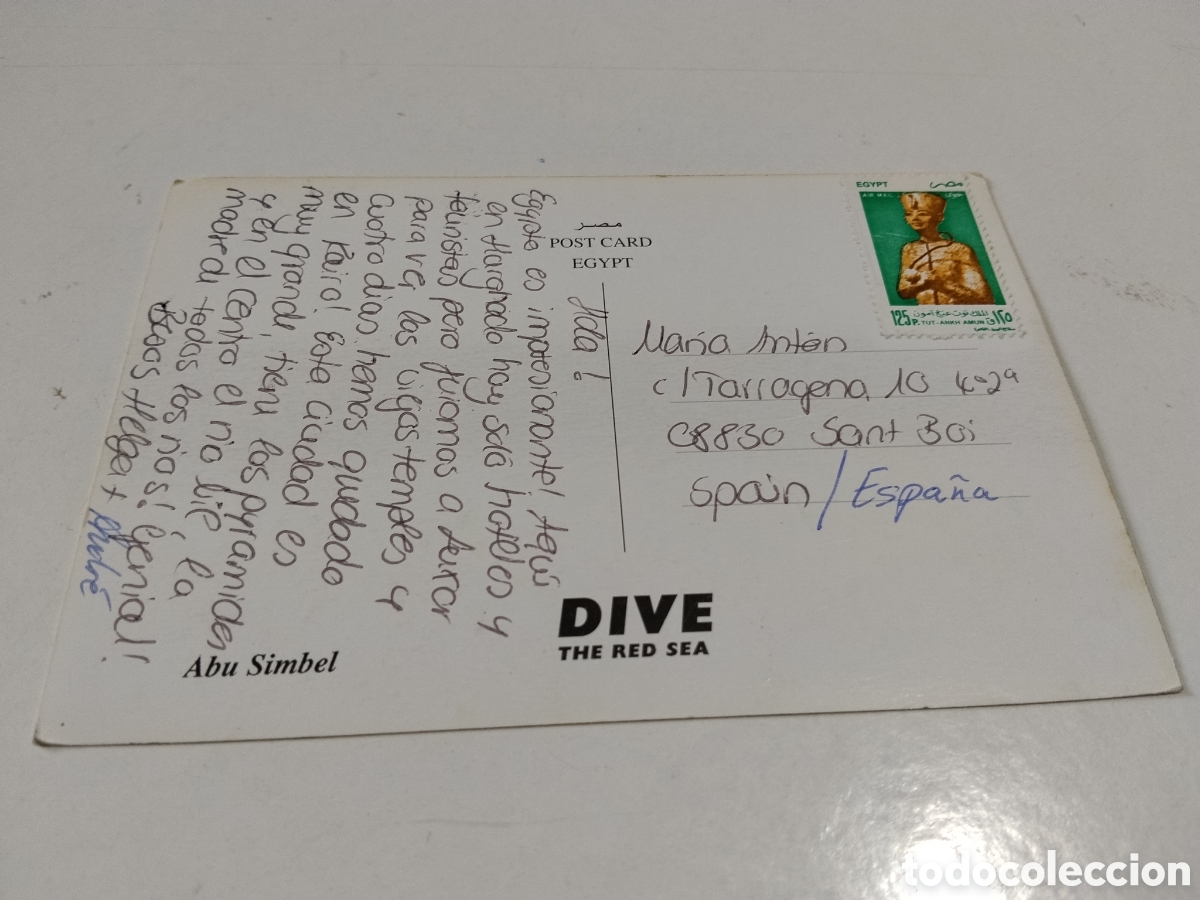 Hola!
Egipto es impresionante! Aquí
en Hurghada hay solo hoteles y
turistas pero fuimos a Luxor
para ver los viejos temples y
cuatro dias hemos quedado
en Kairo! Esta ciudad es
muy grande tiene las pyramides
y en el centro el rio Nile, la
madre de todos los rios! Genial!
Besos Helga +
André
مصر
POST CARD
EGYPT
EGYPT مصر
AIR MAIL
125 P. TUT-ANKH AMUN ١٢٥
الملك توت عنخ آمون
Maria Antón
c/Tarragona 10 4º-2ª
08830 Sant Boi
Spain / España
DIVE
THE RED SEA
Abu Simbel
todocoleccion